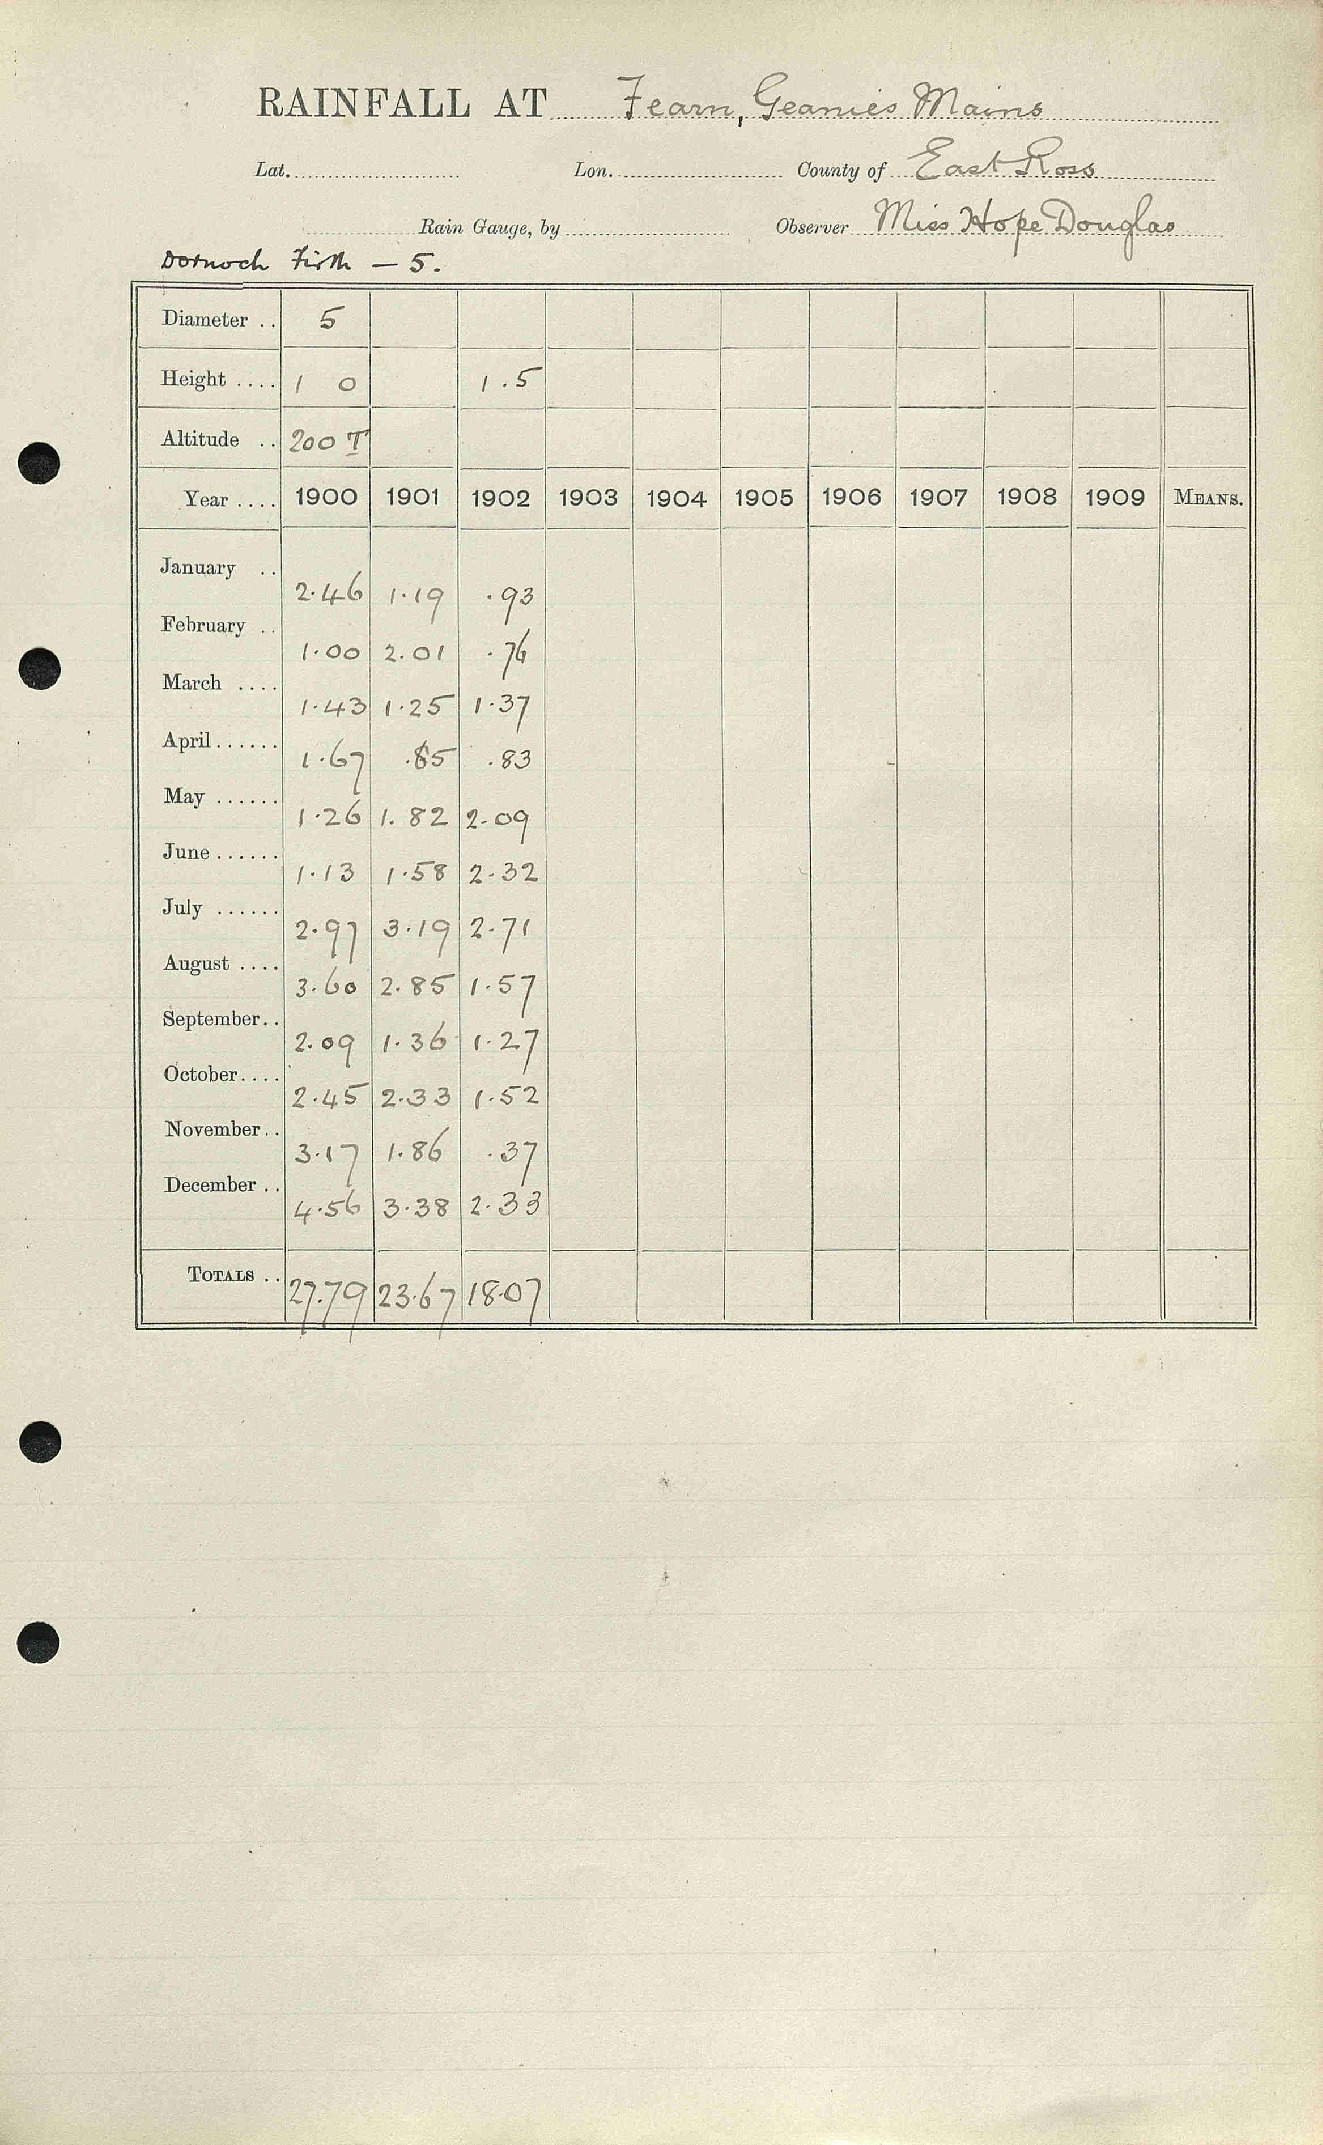 RAINFALL AT Fearn, Geanies Mains
Lat. Lon. County of East Ross
Rain Gauge, by Observer Miss Hope Douglas
Dornoch Firth — 5.
Diameter .. 5
Height .... 1 0 1.5
Altitude .. 200 T
Year .... 1900 1901 1902 1903 1904 1905 1906 1907 1908 1909 MEANS.
January .. 2.46 1.19 .93
February .. 1.00 2.01 .76
March .... 1.43 1.25 1.37
April ...... 1.67 .85 .83
May ...... 1.26 1.82 2.09
June ...... 1.13 1.58 2.32
July ...... 2.97 3.19 2.71
August .... 3.60 2.85 1.57
September .. 2.09 1.36 1.27
October .... 2.45 2.33 1.52
November .. 3.17 1.86 .37
December .. 4.56 3.38 2.33
TOTALS .. 27.79 23.67 18.07